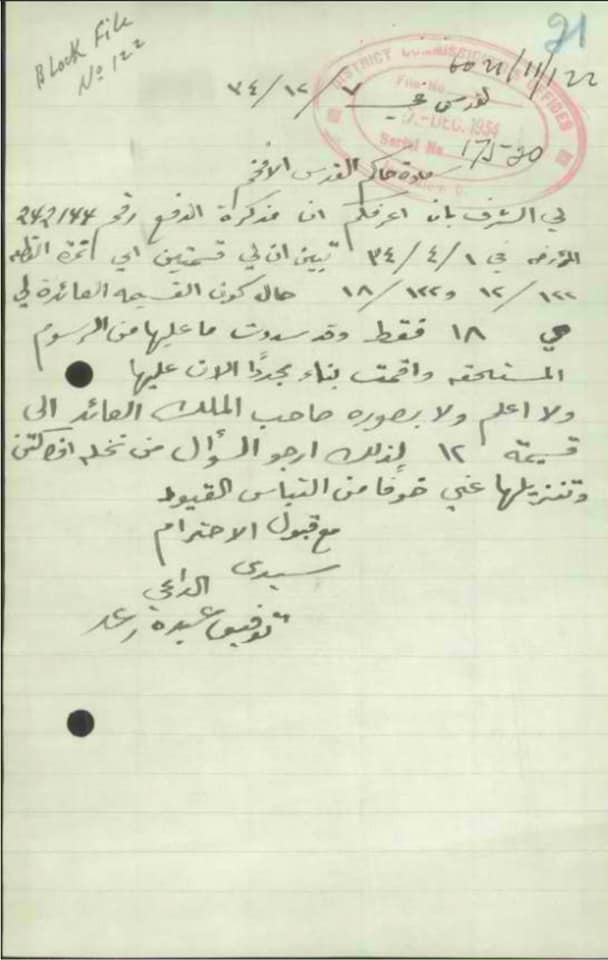 Block File
No 122
21
DISTRICT COMMISSIONER'S OFFICES
File No. 6021/11/122
7 - DEC. 1934
Serial No. 175-20
القدس في ٧/١٢/٣٤
سعادة حاكم القدس الافخم
لي الشرف بان اعرفكم ان مذكرة الدفع رقم 242144
المؤرخه في ١/٤/٣٤ تبين ان لي قسمتين اي نمرة القطعه
١٢/١٢٢ و ١٨/١٢٢ حال كون القسيمه العائدة لي
هي ١٨ فقط وقد سددت ما عليها من الرسوم
المستحقه واقمت بناء مجددًا الان عليها
ولا اعلم ولا بصوره صاحب الملك العائد الى
قسيمة ١٢ لذلك ارجو السؤال من
وتنزيلها عني خوفًا من التباس القيود
مع قبول الاحترام
سيدي
الداعي
توفيق عبده رعد